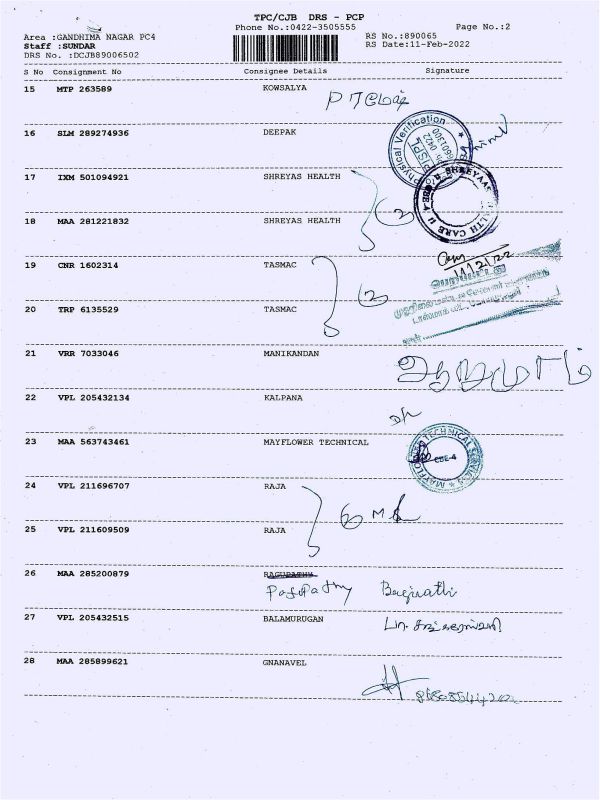 TPC/CJB DRS - PCP
Phone No.:0422-3505555 Page No.:2
Area :GANDHIMA NAGAR PC4 RS No.:890065
Staff :SUNDAR RS Date:11-Feb-2022
DRS No. :DCJB89006502
S No Consignment No Consignee Details Signature
15 MTP 263589 KOWSALYA
16 SLM 289274936 DEEPAK
Physical Verification
17 IXM 501094921 SHREYAS HEALTH
18 MAA 281221832 SHREYAS HEALTH
19 CNR 1602314 TASMAC
20 TRP 6135529 TASMAC
21 VRR 7033046 MANIKANDAN
22 VPL 205432134 KALPANA
23 MAA 563743461 MAYFLOWER TECHNICAL
MAYFLOWER TECHNICAL SERVICES CBE-4
24 VPL 211696707 RAJA
25 VPL 211609509 RAJA
26 MAA 285200879 RAGUPATHY
27 VPL 205432515 BALAMURUGAN
28 MAA 285899621 GNANAVEL